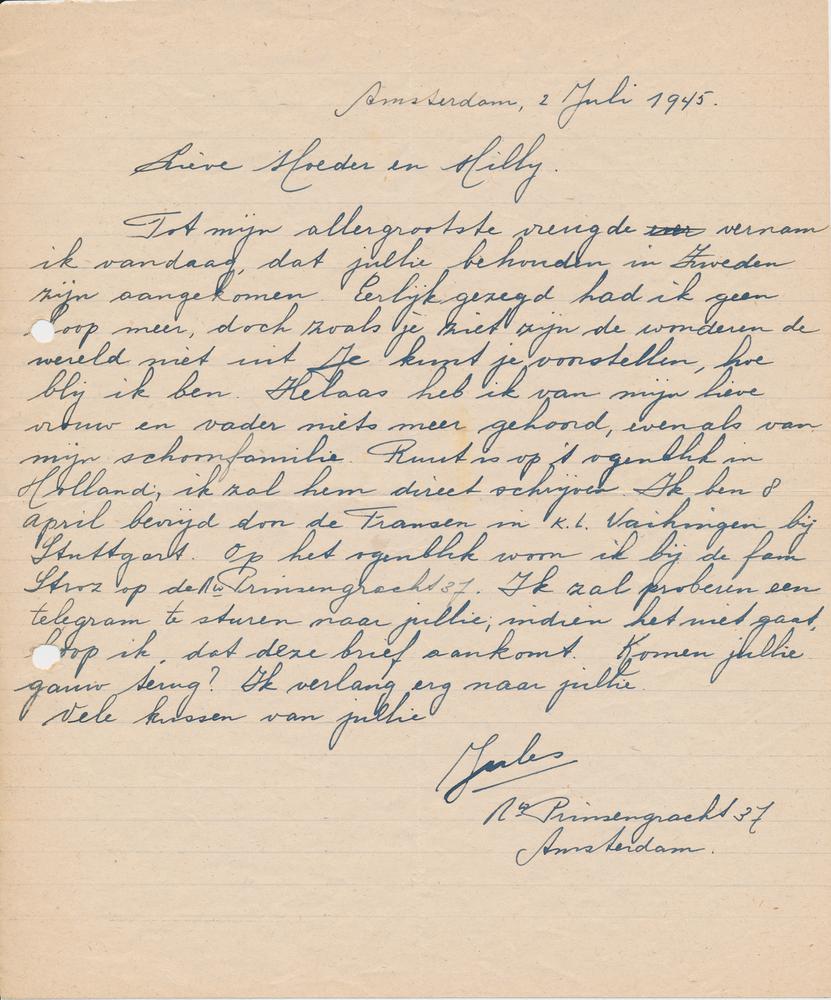 Amsterdam, 2 Juli 1945.
Lieve Moeder en Milly.
Tot mijn allergrootste vreugde vernam
ik vandaag, dat jullie behouden in Zweden
zijn aangekomen. Eerlijk gezegd had ik geen
oop meer, doch zoals je ziet zijn de wonderen de
wereld niet uit. Je kunt je voorstellen, hoe
blij ik ben. Helaas heb ik van mijn lieve
vrouw en vader niets meer gehoord, evenals van
mijn schoonfamilie. Ruut is op 't ogenblik in
Holland; ik zal hem direct schrijven. Ik ben 8
april bevrijd don de Fransen in K.L. Vaihingen bij
Stuttgart. Op het ogenblik woon ik bij de fam
Stroz op de Nwe Prinsengracht 37. Ik zal proberen een
telegram te sturen naar jullie; indien het niet gaat,
oop ik, dat deze brief aankomt. Komen jullie
gauw terug? Ik verlang erg naar jullie.
Vele kussen van jullie
Jules
Nwe Prinsengracht 37
Amsterdam.